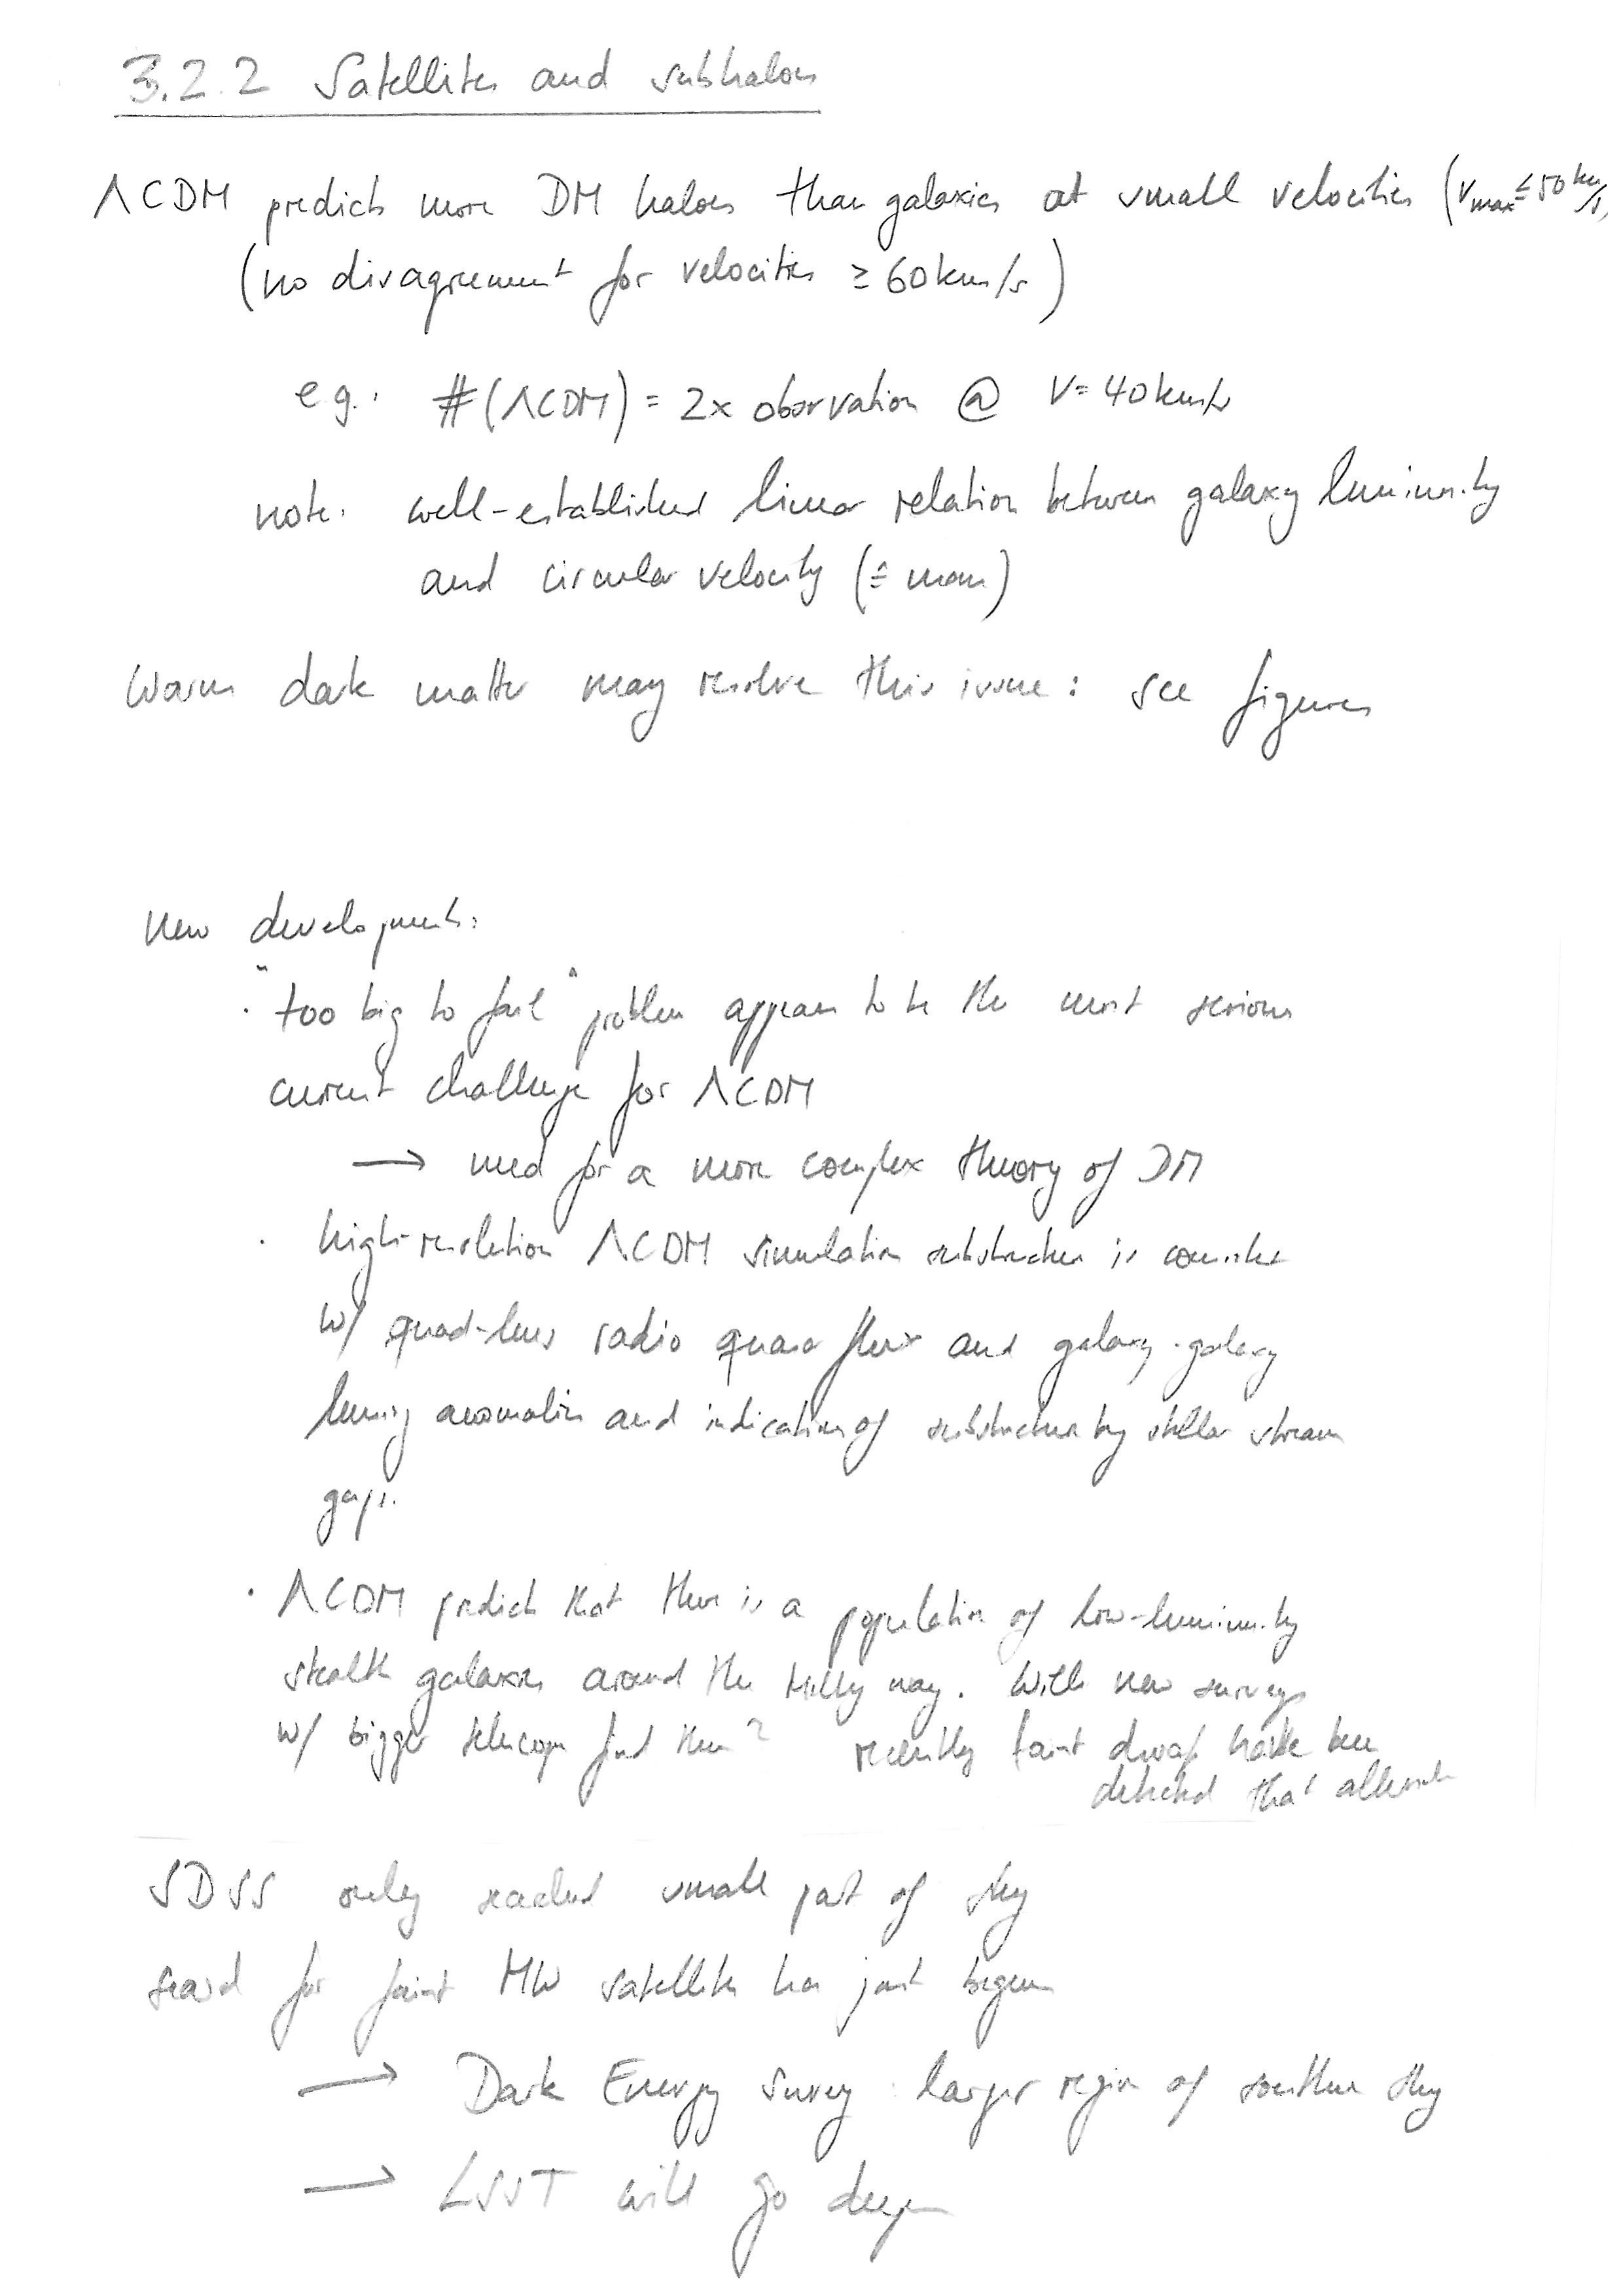 3.2.2 Satellites and subhalos
ΛCDM predicts more DM halos than galaxies at small velocities (v_max ≤ 50 km/s)
(no disagreement for velocities ≥ 60 km/s)
e.g. #(ΛCDM) = 2x observation @ V = 40 km/s
note: well-established linear relation between galaxy luminosity
and circular velocity (≙ mass)
Warm dark matter may resolve this issue: see figures
New developments:
· "too big to fail" problem appears to be the most serious
current challenge for ΛCDM
→ need for a more complex theory of DM
· high-resolution ΛCDM simulation substructure is consistent
w/ quad-lens radio quasar flux and galaxy-galaxy
lensing anomalies and indication of substructure by stellar stream
gaps.
· ΛCDM predicts that there is a population of low-luminosity
stealth galaxies around the Milky Way. Will new surveys
w/ bigger telescopes find them? recently faint dwarfs have been
detected that
SDSS only searched small part of sky
search for faint MW satellites has just begun
→ Dark Energy Survey: larger region of southern sky
→ LSST will go deeper